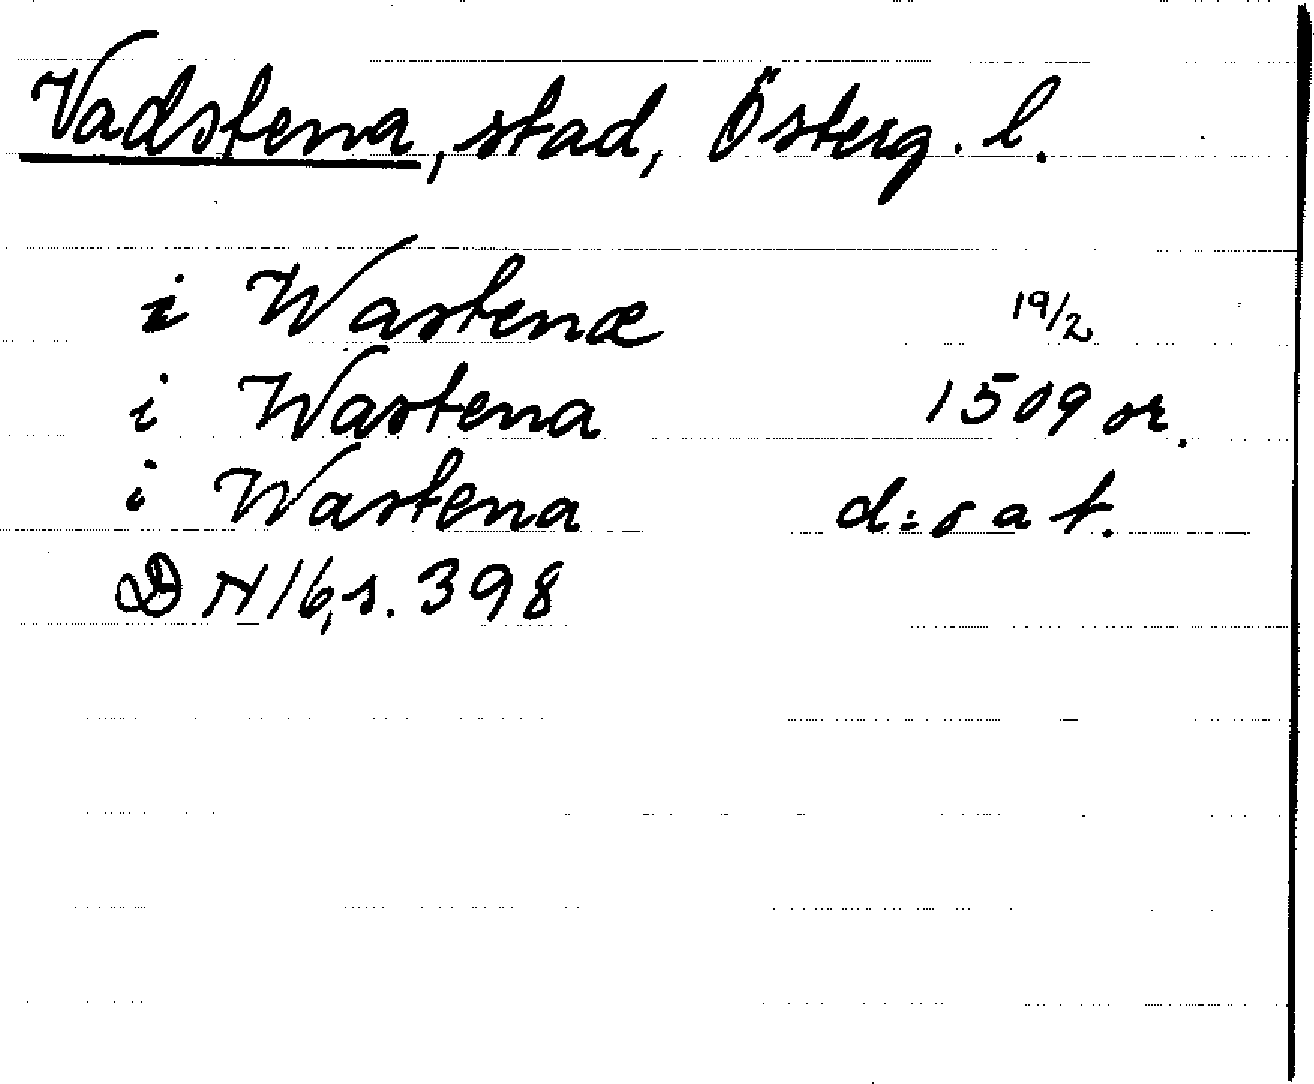 Vadstena, stad, Österg. l.
i Wastenæ 19/2
i Wastena 1509 or.
i Wastena d:o a t.
DN 16, s. 398